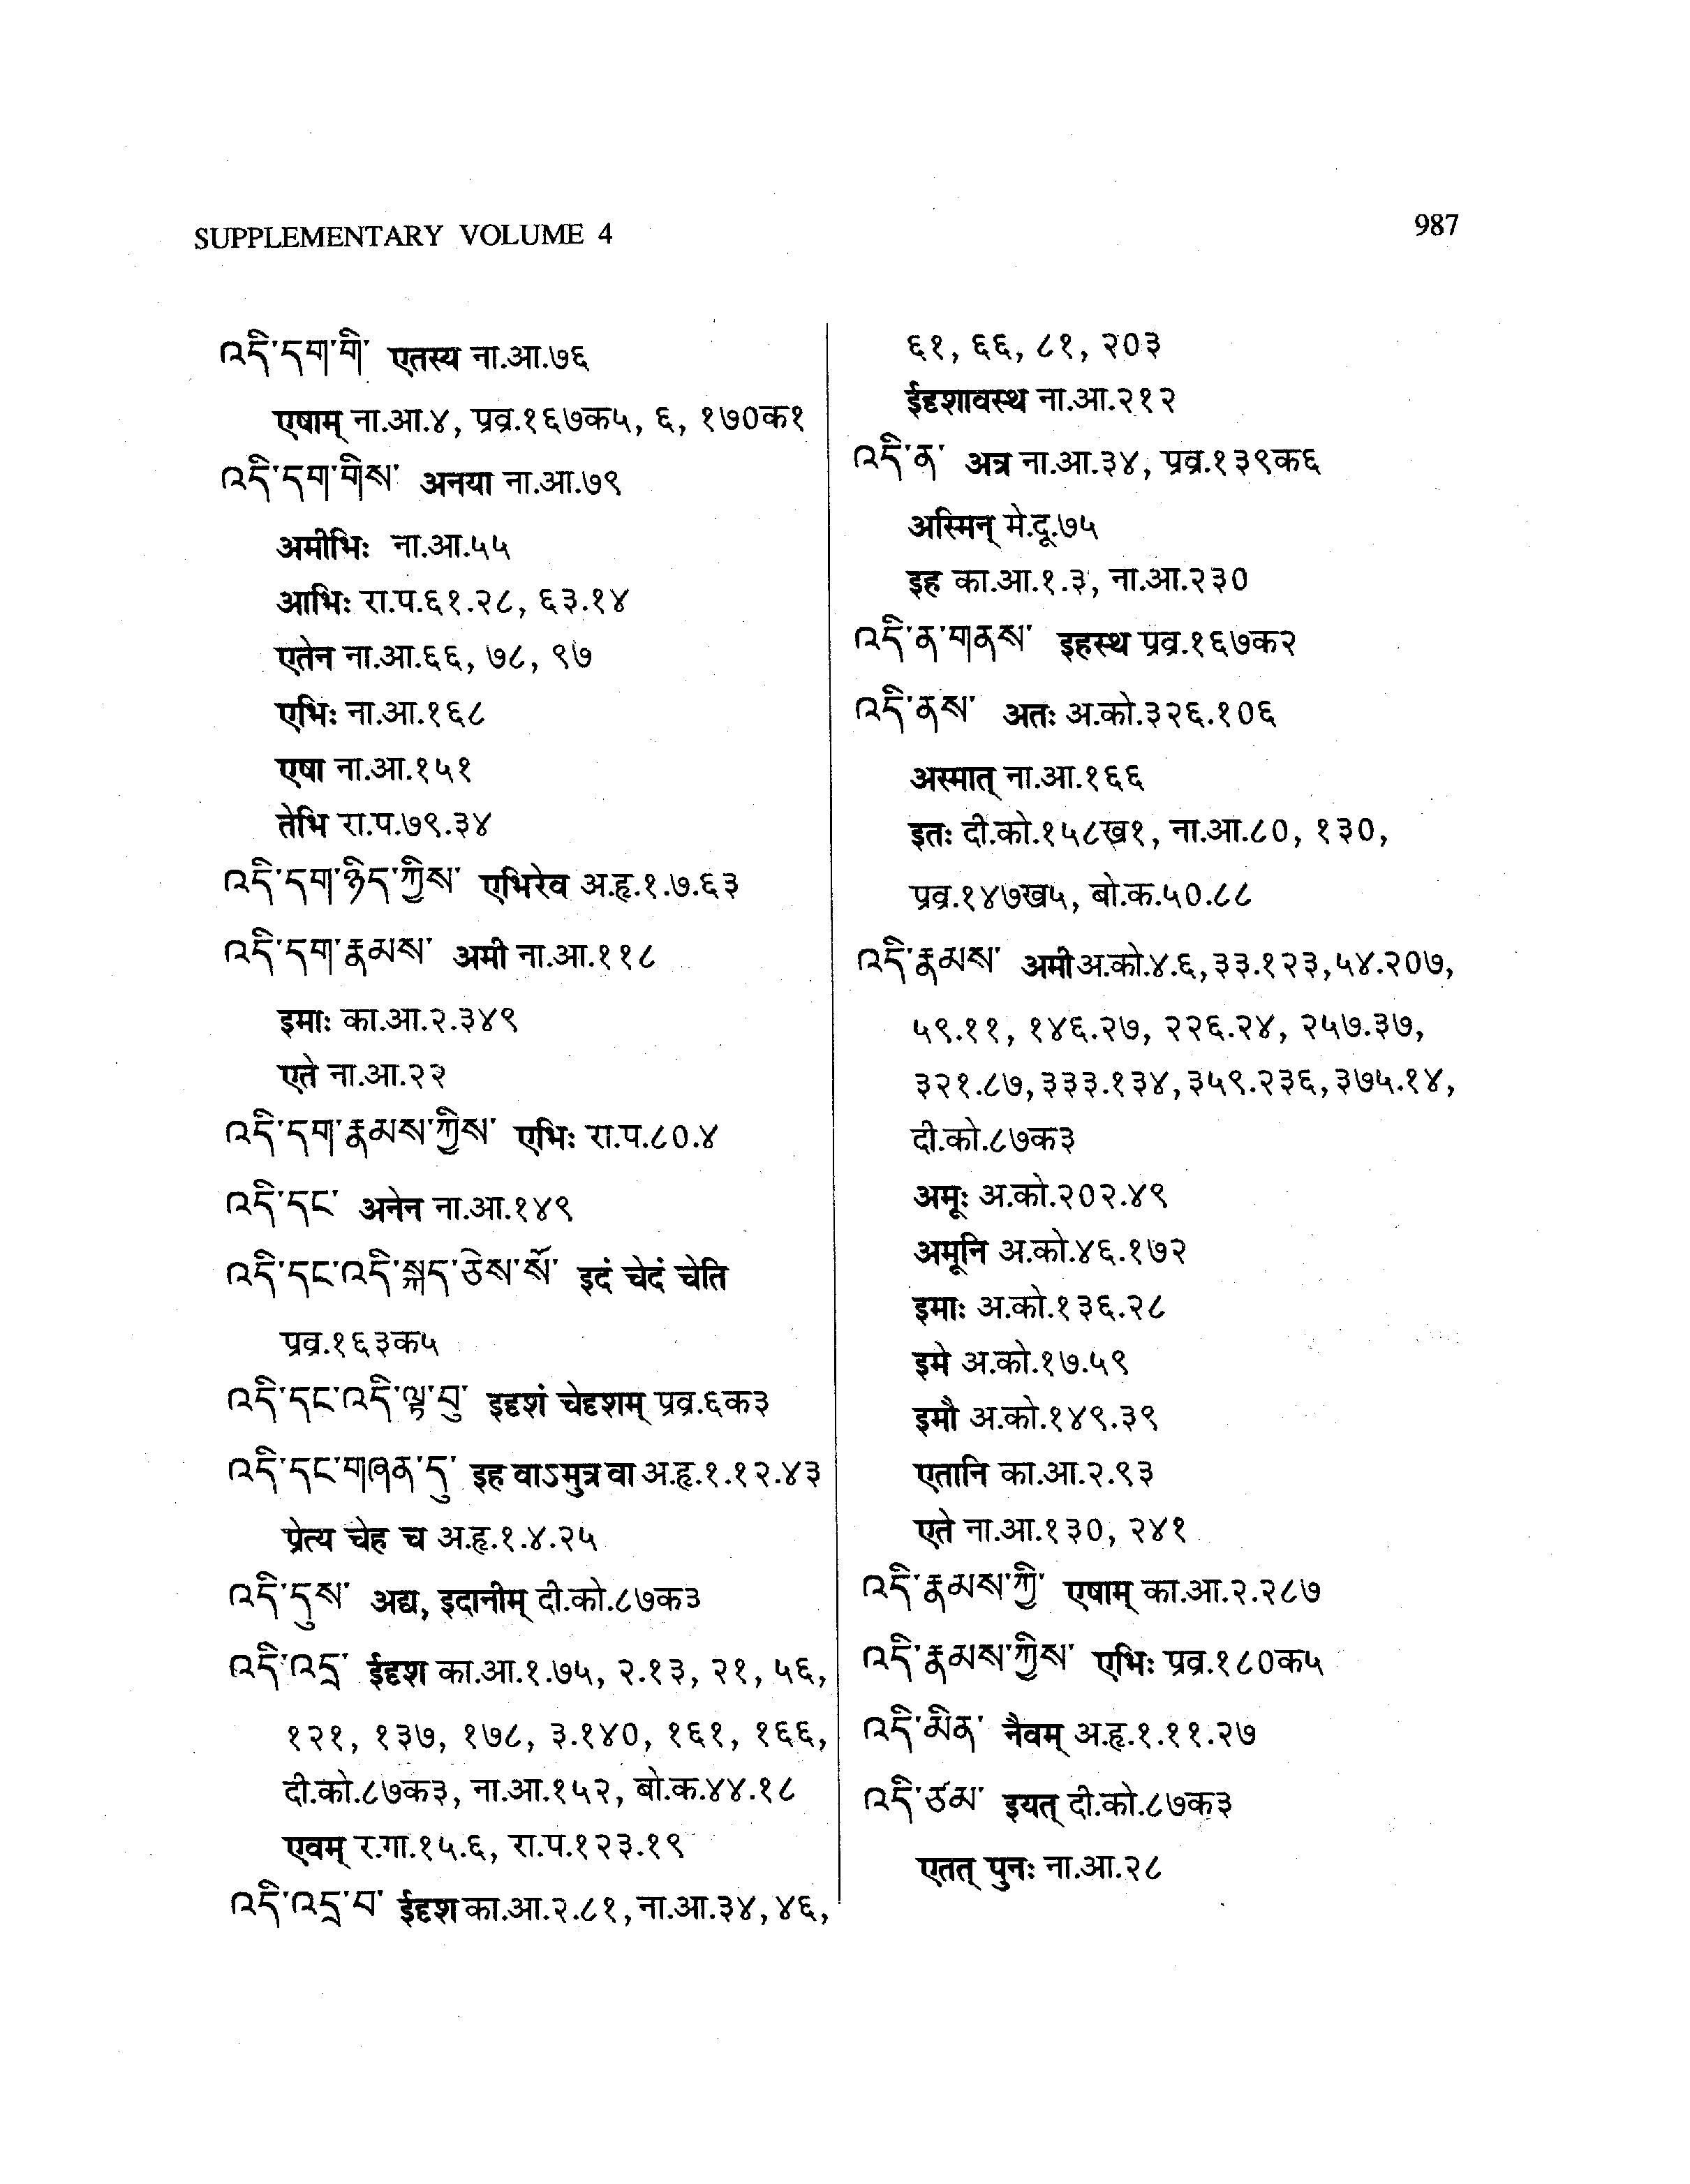 SUPPLEMENTARY VOLUME 4
987
འདི་དག་གི་ एतस्य ना.आ.७६
एषाम् ना.आ.४, प्रव्र.१६७क५, ६, १७०क१
འདི་དག་གིས་ अनया ना.आ.७९
अमीभिः ना.आ.५५
आभिः रा.प.६१.२८, ६३.१४
एतेन ना.आ.६६, ७८, ९७
एभिः ना.आ.१६८
एषा ना.आ.१५१
तेभि रा.प.७९.३४
འདི་དག་ཉིད་ཀྱིས་ एभिरेव अ.हृ.१.७.६३
འདི་དག་རྣམས་ अमी ना.आ.११८
इमाः का.आ.२.३४९
एते ना.आ.२२
འདི་དག་རྣམས་ཀྱིས་ एभिः रा.प.८०.४
འདི་དང་ अनेन ना.आ.१४९
འདི་དང་འདི་སྐད་ཅེས་སོ་ इदं चेदं चेति
प्रव्र.१६३क५
འདི་དང་འདི་ལྟ་བུ་ इदृशं चेदृशम् प्रव्र.६क३
འདི་དང་གཞན་དུ་ इह वाऽमुत्र वा अ.हृ.१.१२.४३
प्रेत्य चेह च अ.हृ.१.४.२५
འདི་དུས་ अद्य, इदानीम् दी.को.८७क३
འདི་འདྲ་ ईदृश का.आ.१.७५, २.१३, २१, ५६,
१२१, १३७, १७८, ३.१४०, १६१, १६६,
दी.को.८७क३, ना.आ.१५२, बो.क.४४.१८
एवम् र.गा.१५.६, रा.प.१२३.१९
འདི་འདྲ་བ་ ईदृश का.आ.२.८१, ना.आ.३४, ४६,
६१, ६६, ८१, २०३
ईदृशावस्थ ना.आ.२१२
འདི་ན་ अत्र ना.आ.३४, प्रव्र.१३९क६
अस्मिन् मे.दू.७५
इह का.आ.१.३, ना.आ.२३०
འདི་ན་གནས་ इहस्थ प्रव्र.१६७क२
འདི་ནས་ अतः अ.को.३२६.१०६
अस्मात् ना.आ.१६६
इतः दी.को.१५८ख१, ना.आ.८०, १३०,
प्रव्र.१४७ख५, बो.क.५०.८८
འདི་རྣམས་ अमी अ.को.४.६, ३३.१२३, ५४.२०७,
५९.११, १४६.२७, २२६.२४, २५७.३७,
३२१.८७, ३३३.१३४, ३५९.२३६, ३७५.१४,
दी.को.८७क३
अमूः अ.को.२०२.४९
अमूनि अ.को.४६.१७२
इमाः अ.को.१३६.२८
इमे अ.को.१७.५९
इमौ अ.को.१४९.३९
एतानि का.आ.२.९३
एते ना.आ.१३०, २४१
འདི་རྣམས་ཀྱི་ एषाम् का.आ.२.२८७
འདི་རྣམས་ཀྱིས་ एभिः प्रव्र.१८०क५
འདི་མིན་ नैवम् अ.हृ.१.११.२७
འདི་ཙམ་ इयत् दी.को.८७क३
एतत् पुनः ना.आ.२८